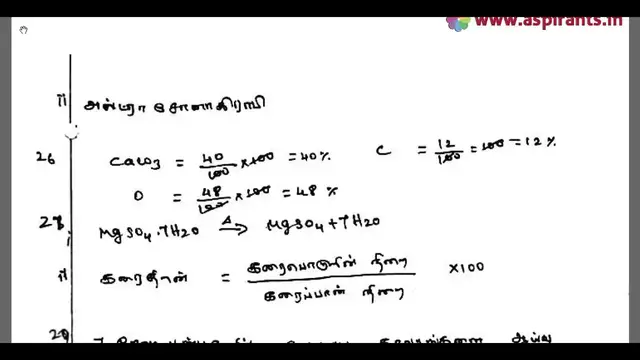 www.aspirants.in
ii அல்ட்ரா சோனாகிராஃபி
26 CaCO3 = 40/100 × 100 = 40% C = 12/100 = 100 = 12%
O = 48/100 × 100 = 48%
28. i MgSO4.7H2O ⇌ MgSO4 + 7H2O
ii கரைதிறன் = கரைபொருளின் நிறை / கரைப்பான் நிறை ×100
29